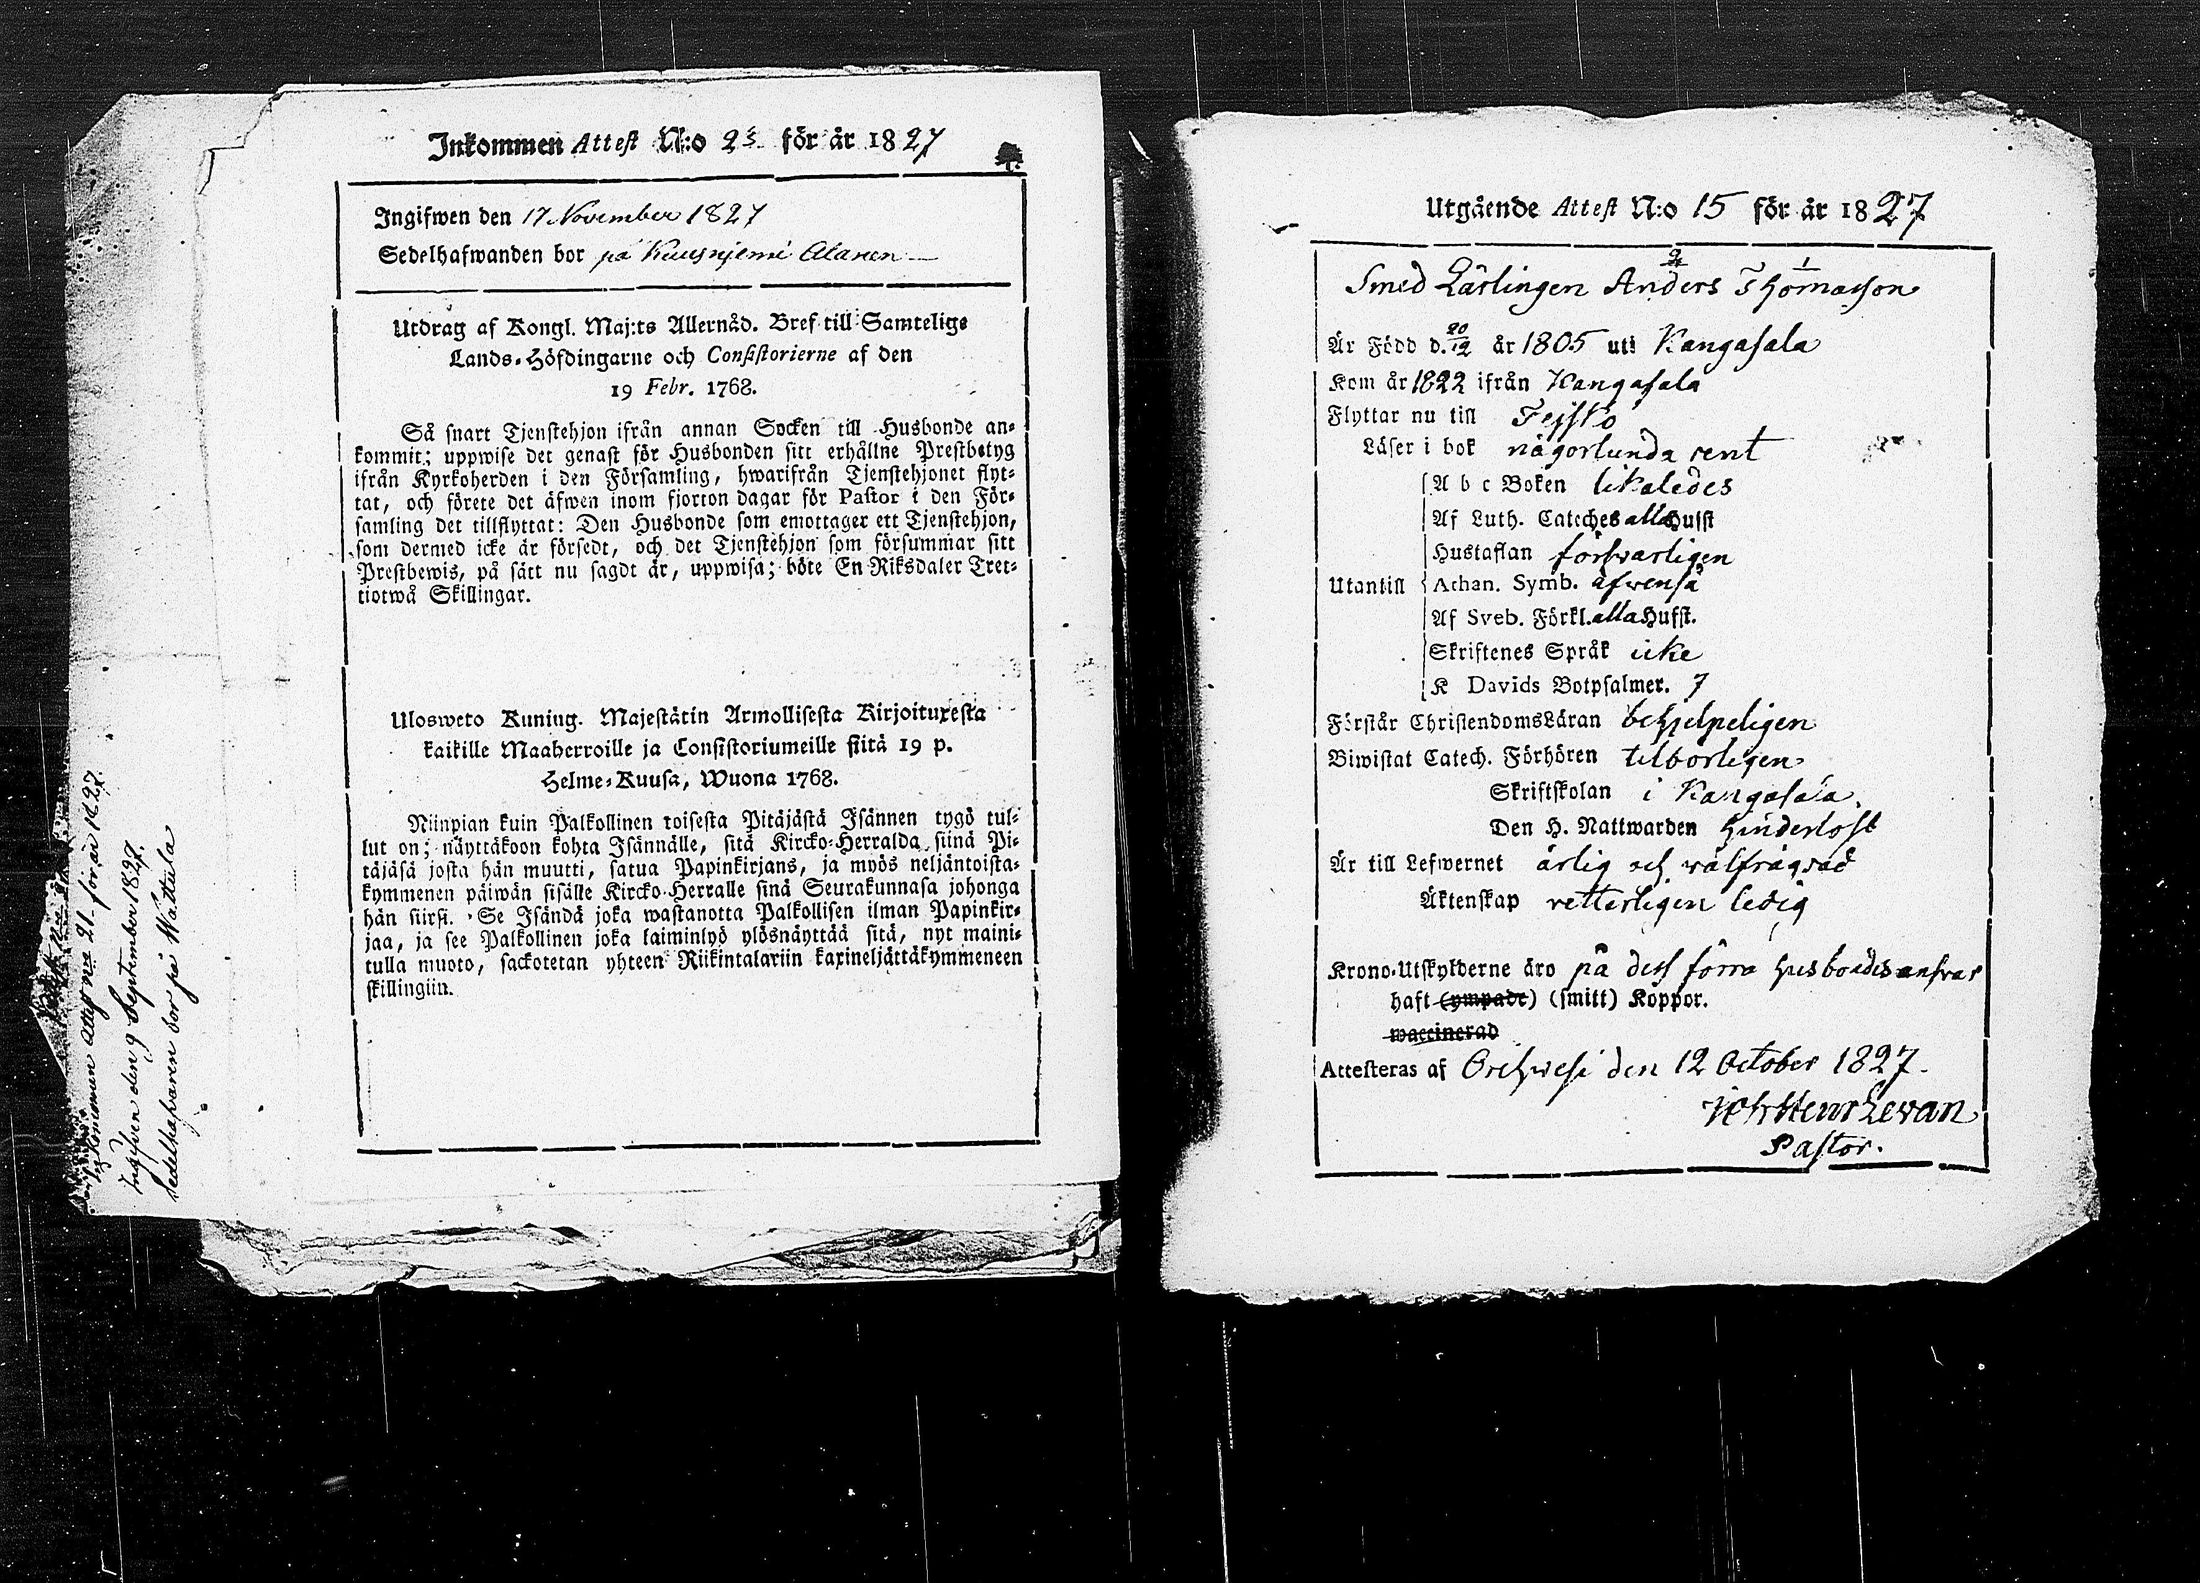 Inkommen Attest N:o 25 för år 1827
Ingifwen den 17 November 1827
Sedelhafwanden bor på Kuusnjemi Alanen
Utdrag af Kongl. Maj:ts Allernåd. Bref till Samtelige
Lands-Höfdingarne och Consistorierne af den
19 Febr. 1768.
Så snart Tjenstehjon ifrån annan Socken till Husbonde an-
kommit; uppwise det genast för Husbonden sitt erhållne Prestbetyg
ifrån Kyrkoherden i den Församling, hwarifrån Tjenstehjonet flyt-
tat, och förete det äfwen inom fjorton dagar för Pastor i den För-
samling det tillflyttat: Den Husbonde som emottager ett Tjenstehjon,
som dermed icke är försedt, och det Tjenstehjon som försummar sitt
Prestbewis, på sätt nu sagdt är, uppwisa; böte En Riksdaler Tret-
tiotwå Skillingar.
Ulosweto Kuning. Majestätin Armollisesta Kirjoituxesta
kaikille Maaherroille ja Consistoriumeille siitä 19 p.
Helme-Kuusa, Wuona 1768.
Niinpian kuin Palkollinen toisesta Pitäjästä Isännen tygö tul-
lut on; näyttäkoon kohta Isännälle, sitä Kircko-Herralda siinä Pi-
täjäsä josta hän muutti, saatua Papinkirjans, ja myös neljäntoista-
kymmenen päiwän sisälle Kircko-Herralle sinä Seurakunnasa johonga
hän siirsi. Se Isändä joka wastanotta Palkollisen ilman Papinkir-
jaa, ja see Palkollinen joka laiminlyö ylösnäyttää sitä, nyt maini-
tulla muoto, sackotetan yhteen Riikintalariin kaxineljättäkymmeneen
skillingiin.
Inkommen Attest N:o 21 för år 1827.
Ingifven den 9 September 1827.
Sedelhafvaren bor på Wattula
Utgående Attest N:o 15 för år 1827
Smed Lärlingen Anders Thomasson
Är Född d. 20/12 år 1805 uti Kangasala
Kom år 1822 ifrån Kangasala
Flyttar nu till Tejsko
Läser i bok någorlunda rent
A b c Boken likaledes
Af Luth. Catechesalla Hufst
Hustaflan försvarligen
Utantill Athan. Symb. äfwenså
Af Sveb. Förkl. alla Hufst.
Skriftenes Språk icke
K Davids Botpsalmer. 7
Förstår ChristendomsLäran behjelpeligen
Biwistat Catech. Förhören tilbörligen
Skriftskolan i Kangasala
Den H. Nattwarden hinderlöst
Är till Lefwernet ärlig och välfrägdad
Äktenskap vetterligen ledig
Krono-Utskylderne äro på dess förra husbondes ansvar
haft (ympade) (smitt) Koppor.
waccinerad
Attesteras af Orehwesi den 12 October 1827.
Joh Henr Levan
Pastor.